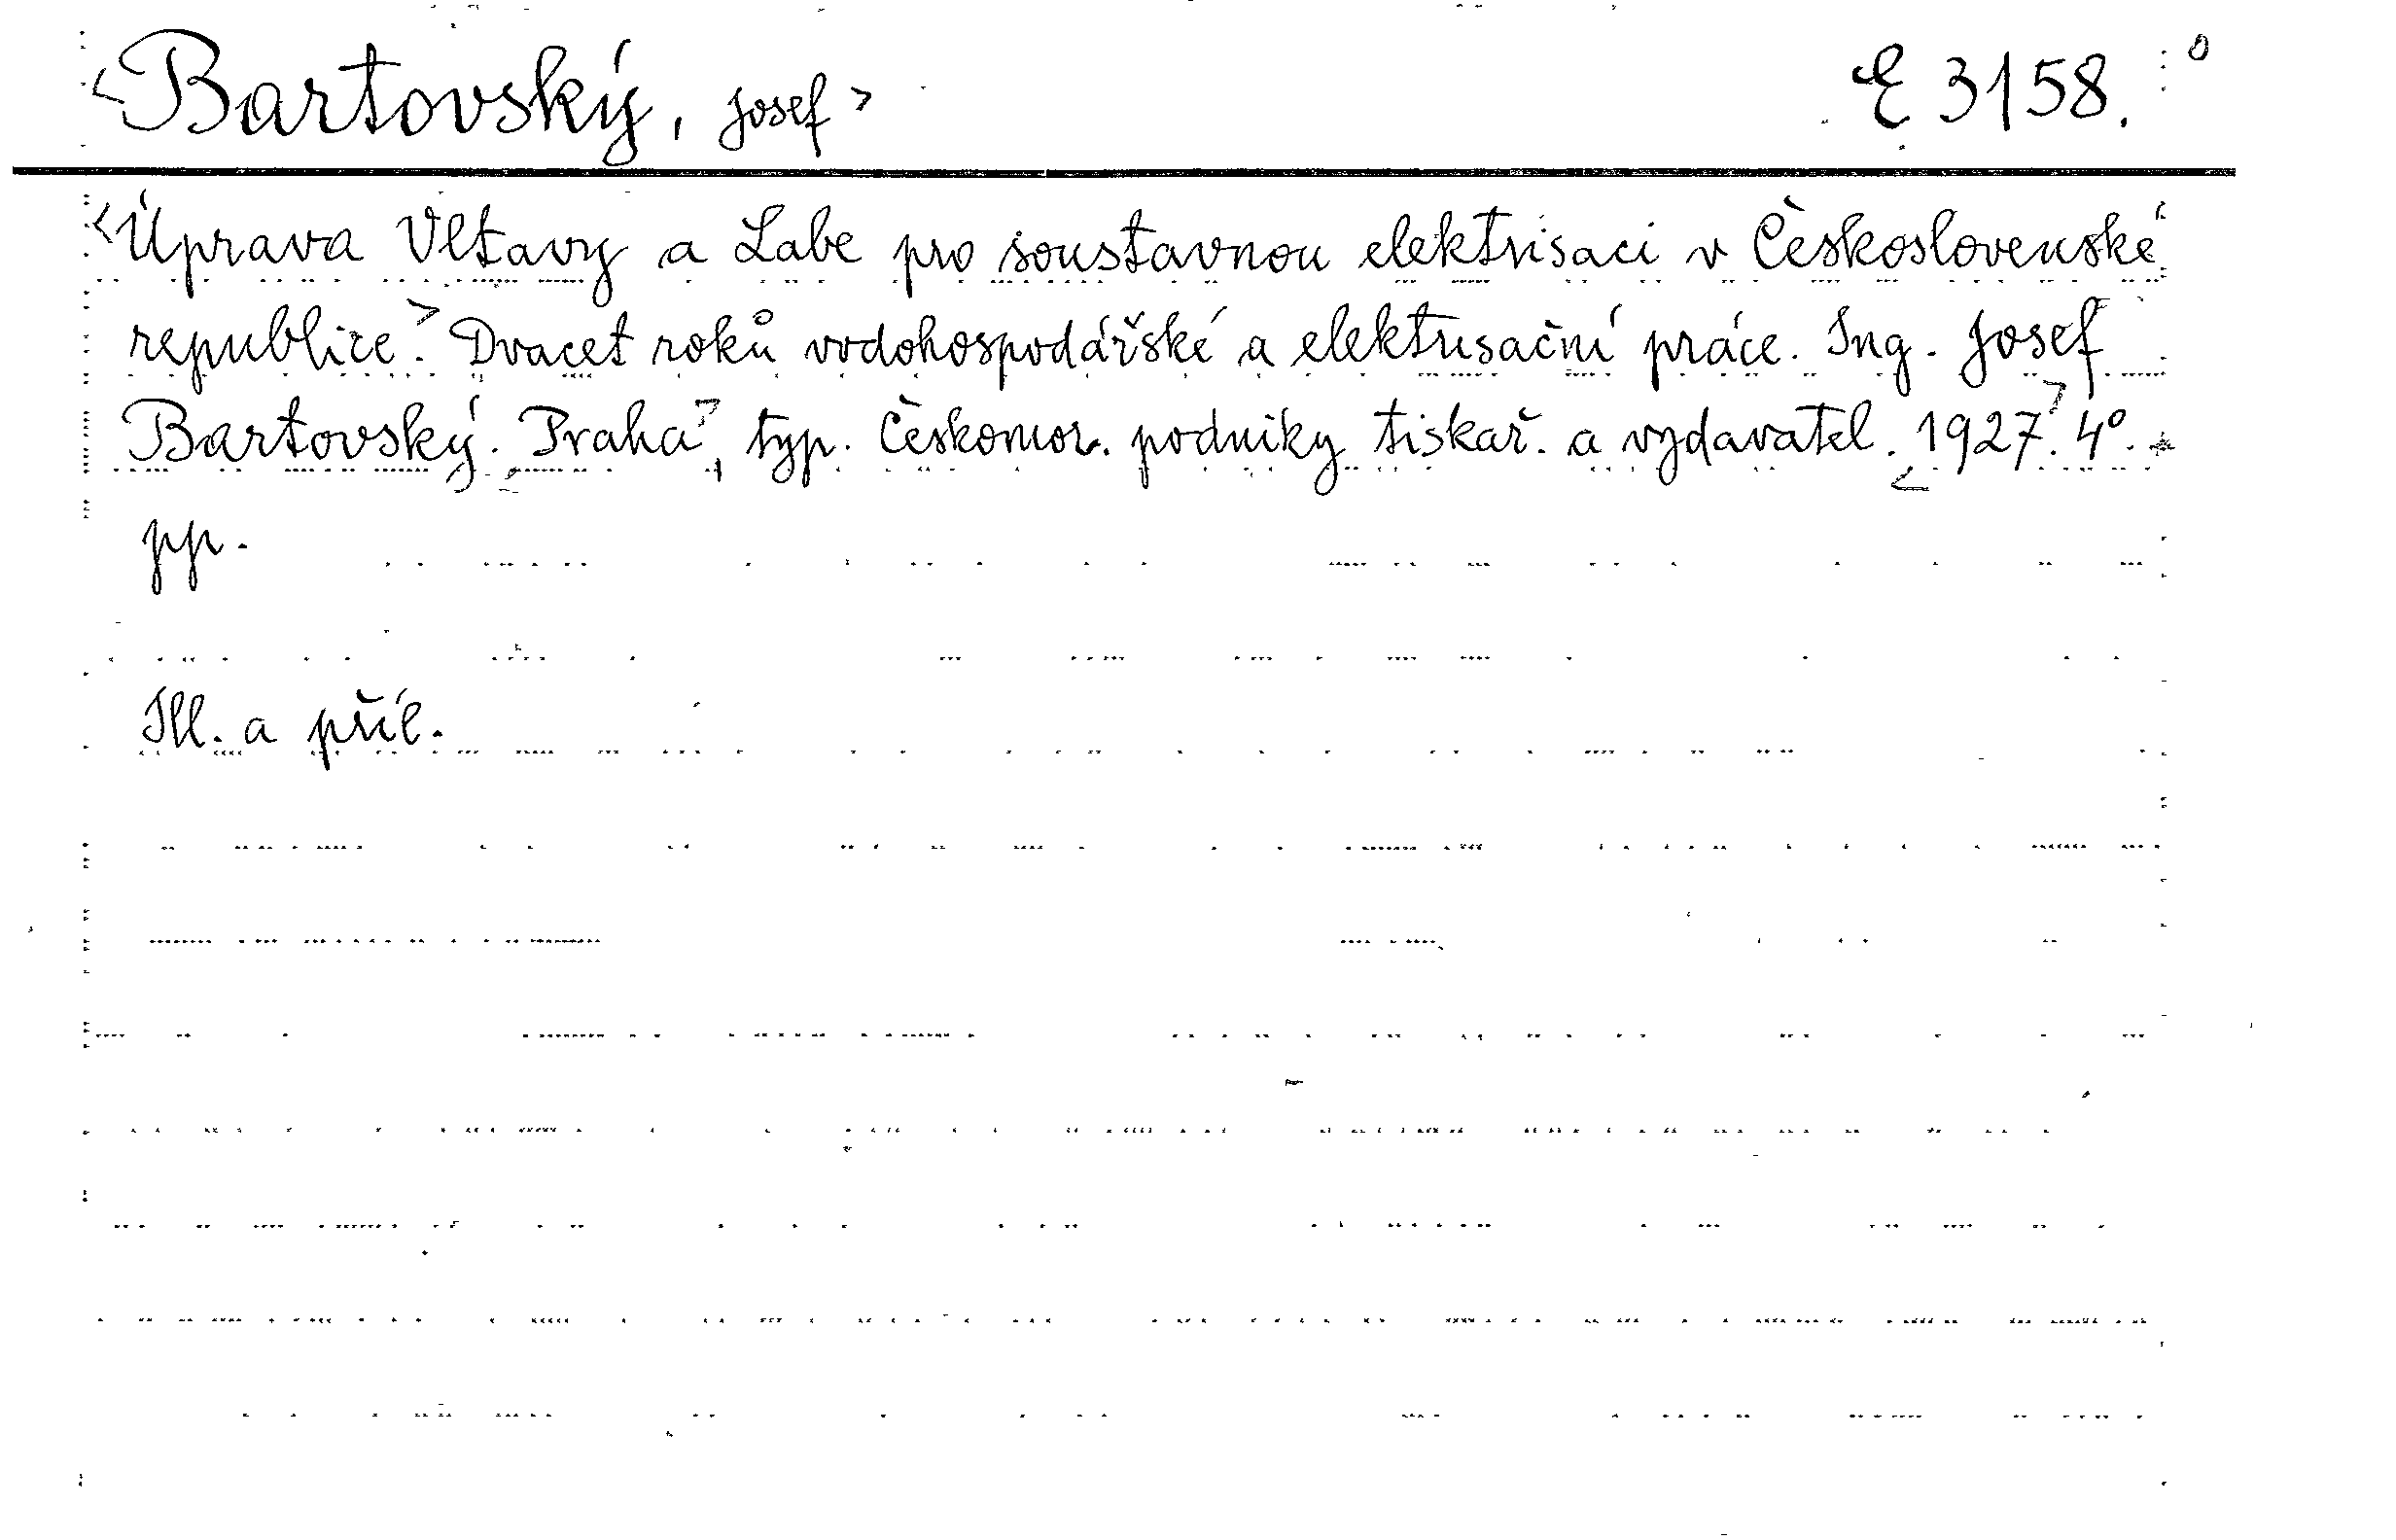 <Bartovský, Josef> E 3158.
<Úprava Vltavy a Labe pro soustavnou elektrisaci v Československé
republice.> Dvacet roků vodohospodářské a elektrisační práce. Ing. Josef
Bartovský. <Praha>, typ. Českomor. podniky tiskař. a vydavatel. <1927>. 4°.
pp.
Ill. a příl.